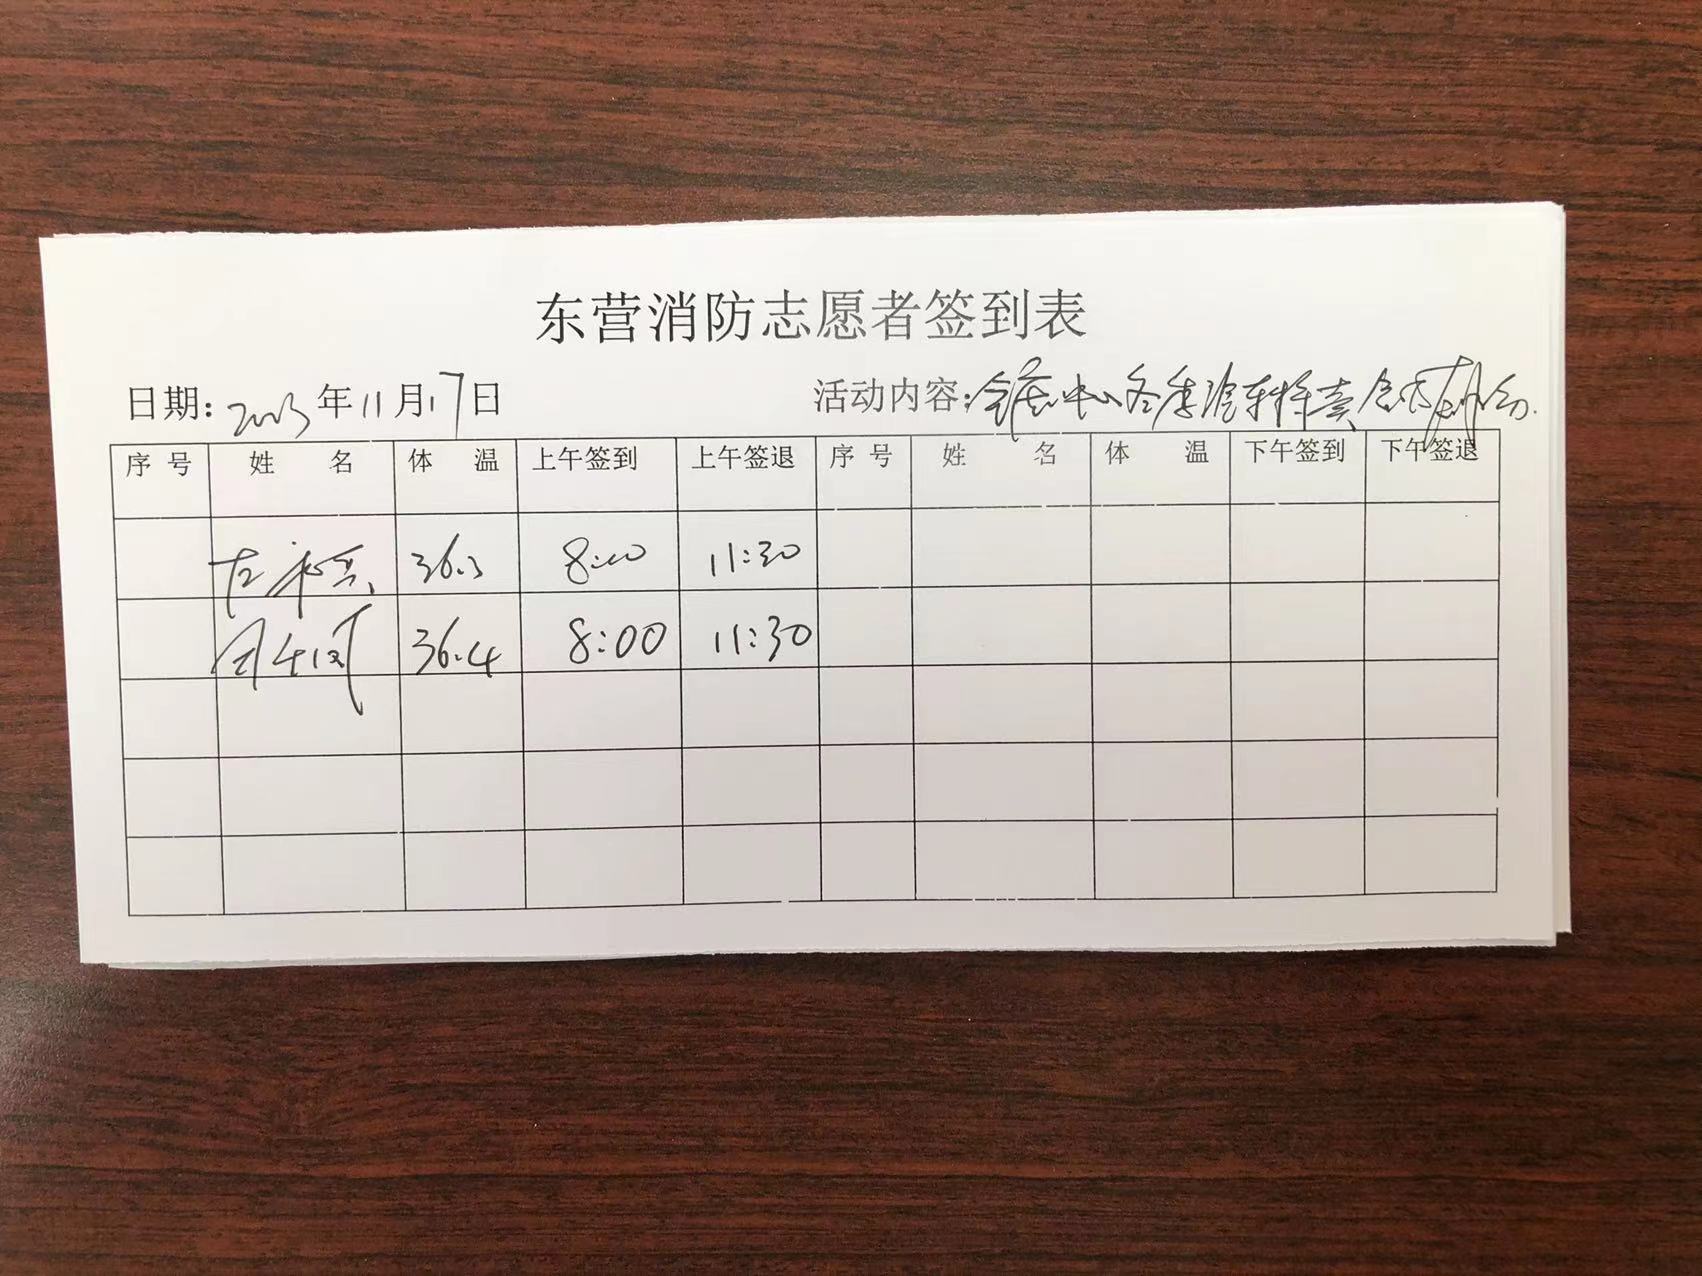 东营消防志愿者签到表
日期: 2023年11月17日 活动内容: 会展中心冬季汽车特卖会
序号 姓名 体温 上午签到 上午签退 序号 姓名 体温 下午签到 下午签退
36.3 8:00 11:30
36.4 8:00 11:30